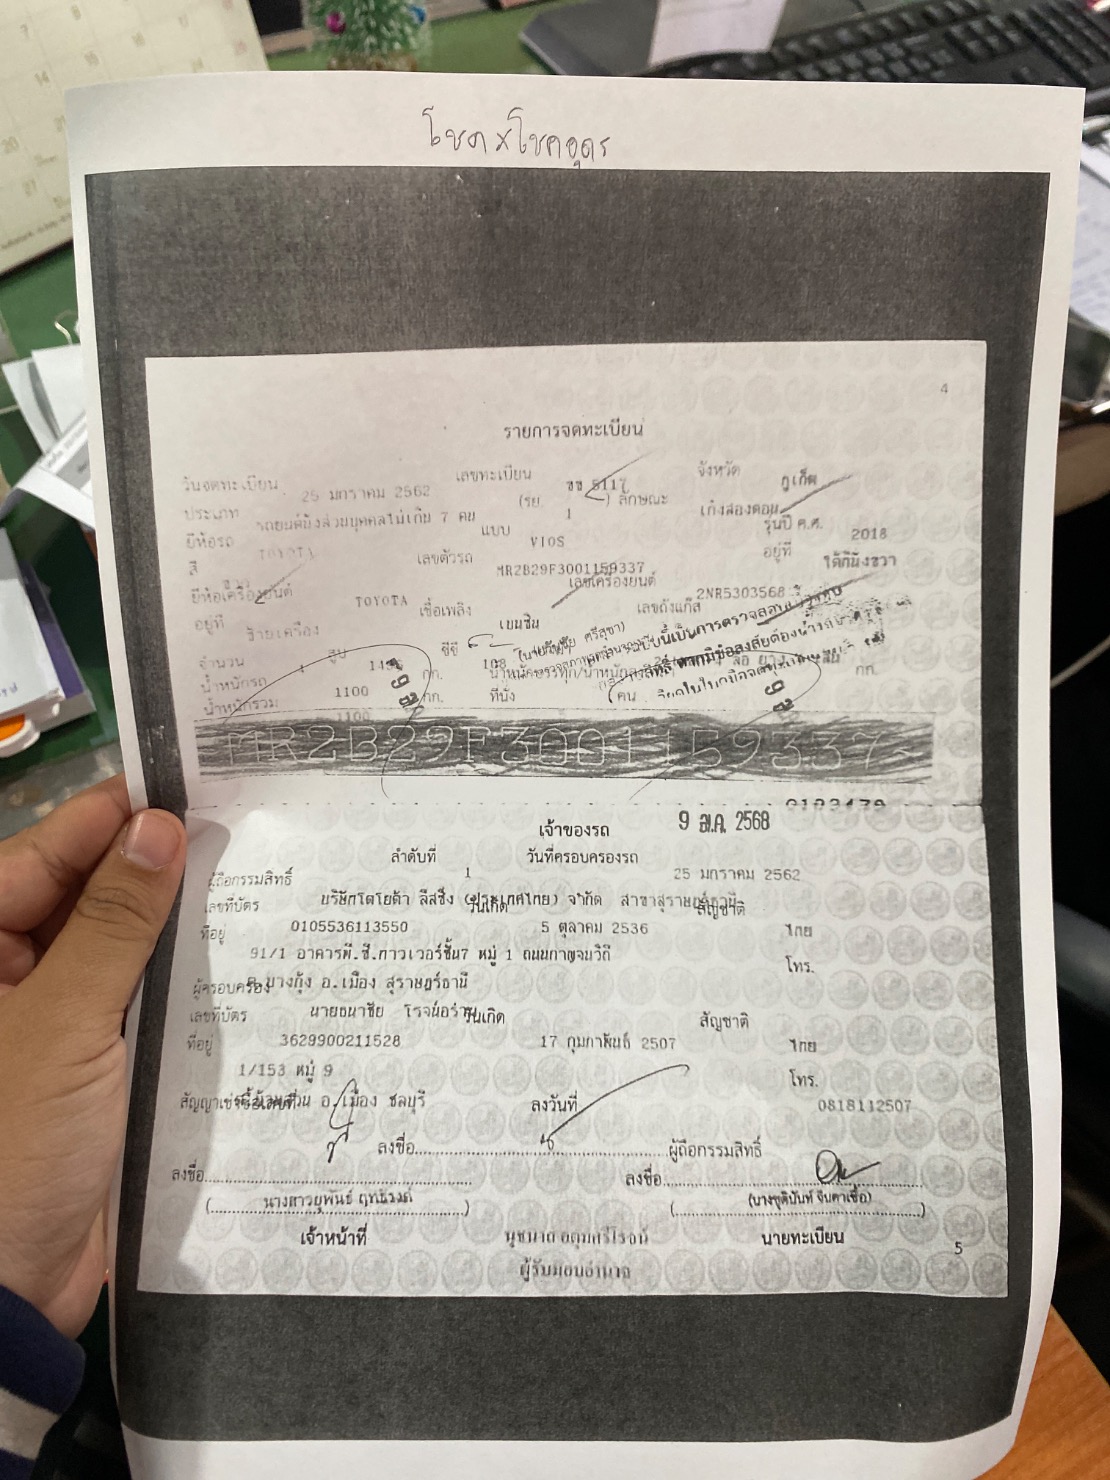 โชค x โชคอุดร
4
รายการจดทะเบียน
วันจดทะเบียน 25 มกราคม 2562 เลขทะเบียน ขข 5117 จังหวัด ภูเก็ต
ประเภท รถยนต์นั่งส่วนบุคคลไม่เกิน 7 คน (รย. 1 ) ลักษณะ เก๋งสองตอน
ยี่ห้อรถ TOYOTA แบบ VIOS รุ่นปี ค.ศ. 2018
สี เลขตัวรถ MR2B29F3001159337 อยู่ที่ ใต้ที่นั่งขวา
ยี่ห้อเครื่องยนต์ TOYOTA เลขเครื่องยนต์ 2NR5303568
อยู่ที่ ซ้ายเครื่อง เชื้อเพลิง เบนซิน เลขถังแก๊ส
จำนวน สูบ ซีซี 108
น้ำหนักรถ 1100 กก. น้ำหนักบรรทุก/น้ำหนัก กก.
น้ำหนักรวม 1100 กก. ที่นั่ง คน
MR2B29F3001159337
เจ้าของรถ 9 ม.ค. 2568
ลำดับที่ 1 วันที่ครอบครองรถ 25 มกราคม 2562
ผู้ถือกรรมสิทธิ์ บริษัทโตโยต้า ลีสซิ่ง (ประเทศไทย) จำกัด สาขาสุราษฎร์ธานี
เลขที่บัตร 0105536113550 วันเกิด 5 ตุลาคม 2536 สัญชาติ ไทย
ที่อยู่ 91/1 อาคารพี.ซี.ทาวเวอร์ชั้น7 หมู่ 1 ถนนกาญจนวิถี โทร.
ต.บางกุ้ง อ.เมือง สุราษฎร์ธานี
ผู้ครอบครอง นายธนาชัย
เลขที่บัตร 3629900211528 วันเกิด 17 กุมภาพันธ์ 2507 สัญชาติ ไทย
ที่อยู่ 1/153 หมู่ 9 โทร. 0818112507
อ.เมือง ชลบุรี
สัญญาเช่าซื้อเลขที่ ลงวันที่
ลงชื่อ ผู้ถือกรรมสิทธิ์
ลงชื่อ ลงชื่อ
(นางสาวยุพันธ์ ฤทธิวงศ์) (นางชุตินันท์ จินดาเชื้อ)
เจ้าหน้าที่ นายทะเบียน
นุชนาถ อุดมศรีโรจน์
ผู้รับมอบอำนาจ
5